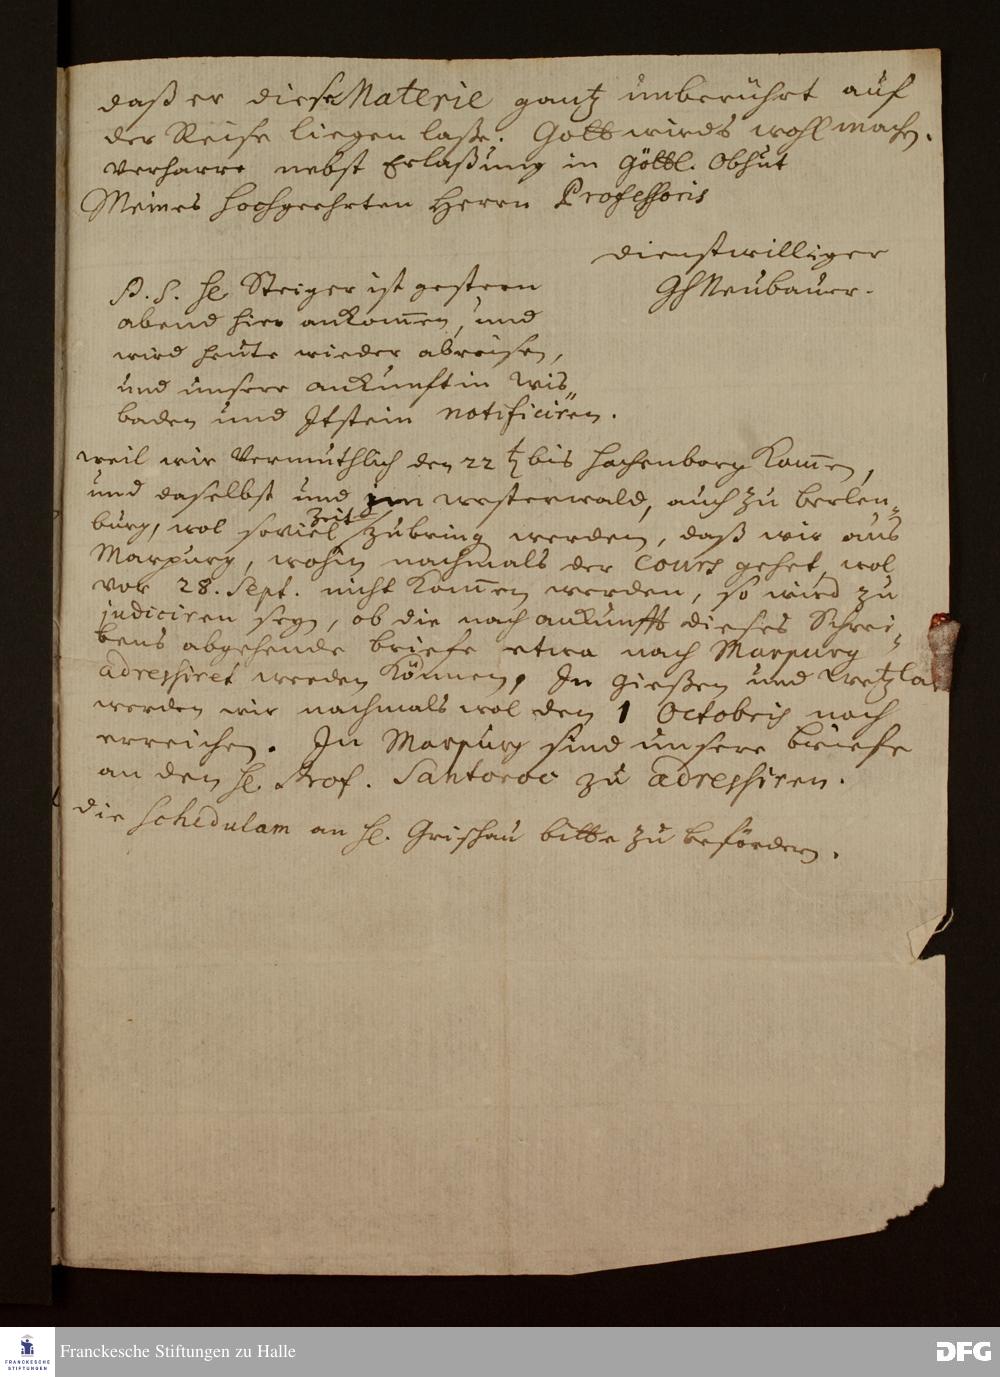 daß er diese Materie gantz unberührt auf
der Reise liegen laße. Gott wirds wohl machen.
Verharre nebst Erlaßung in Göttl. Obhut
Meines Hochgeehrten Herrn Professoris
dienstwilliger
GHNeubauer.
P. S. He Steiger ist gestern
abend hier ankom̅en, und
wird heute wieder abreisen,
und unsere ankunft in Wis„
baden und Itstein notificiren.
weil wir Vermuthlich den 22 t bis Hachenborg kom̅en,
und daselbst und im westerwald, auch zu berlen„
burg, wol soviel Zeit zubringen werden, daß wir aus
Marpurg, wohin nachmals der Cours gehet, wol
vor 28. Sept. nicht kom̅en werden, so wird zu
judiciren seyn, ob die nach ankunfft dieses Schrei„
bens abgehende briefe etwa nach Marpurg
adressiret werden können. In Gießen und Wetzlar
werden wir nachmals wol den 1 Octobris noch
erreichen. In Marpurg sind unsere briefe
an den He. Prof. Santoroc zu adressiren.
die Schedulam an He. Grischau bitte zu befördern.
FRANCKESCHE
STIFTUNGEN
Franckesche Stiftungen zu Halle
DFG